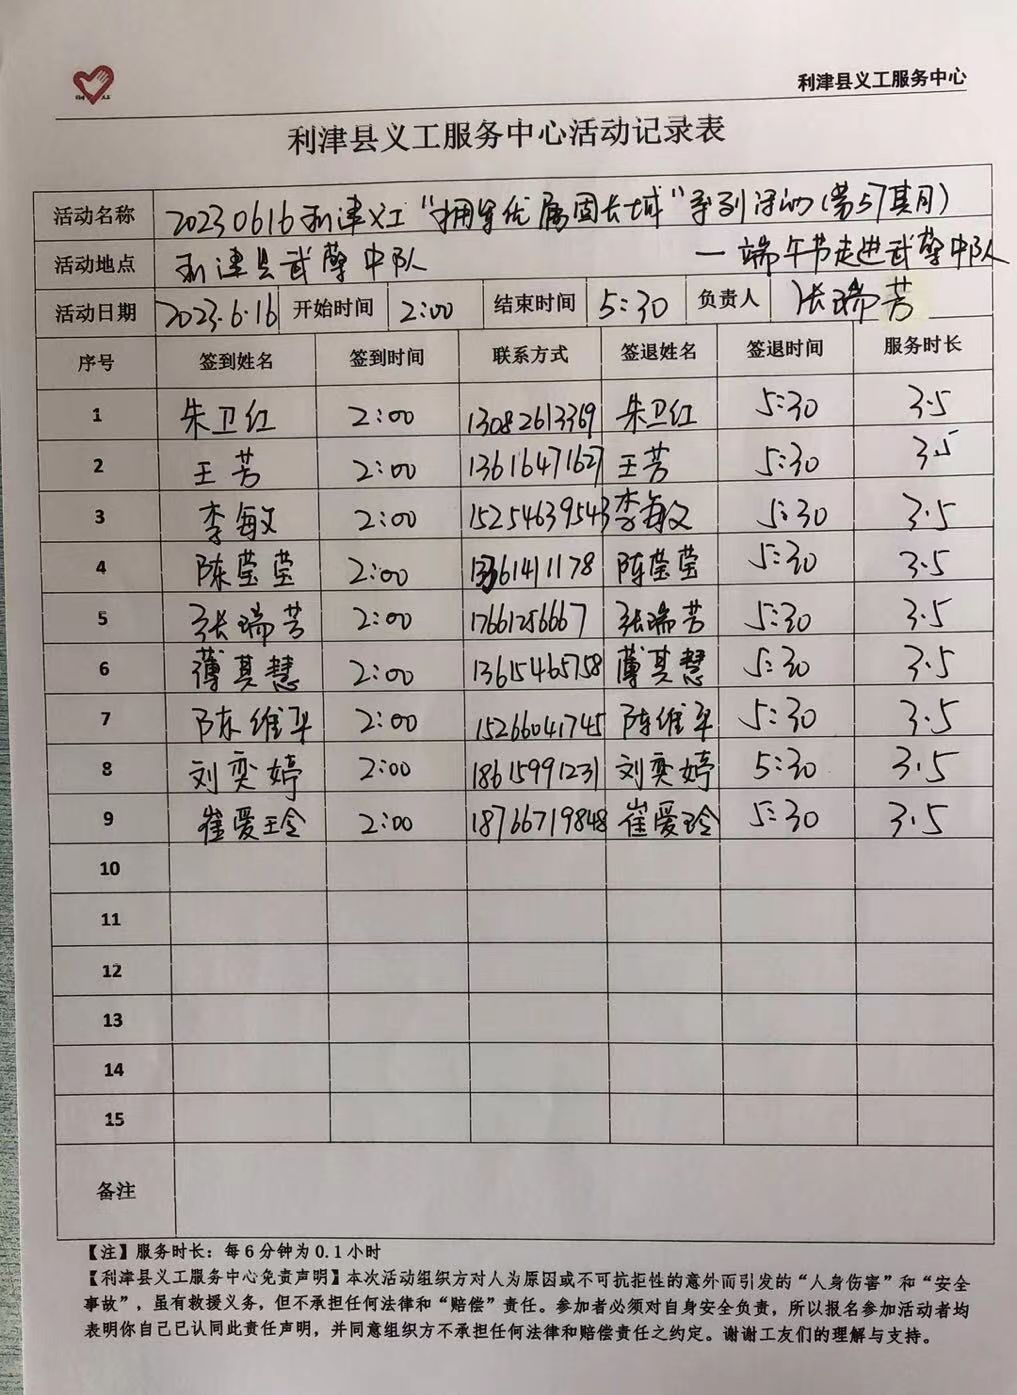 利津县义工服务中心
利津县义工服务中心活动记录表
活动名称 20230616利津义工“拥军优属固长城”系列活动(第57期)
活动地点 利津县武警中队 —端午节走进武警中队
活动日期 2023.6.16 开始时间 2:00 结束时间 5:30 负责人 张瑞芳
序号 签到姓名 签到时间 联系方式 签退姓名 签退时间 服务时长
1 朱卫红 2:00 13082613369 朱卫红 5:30 3.5
2 王芳 2:00 13616471627 王芳 5:30 3.5
3 李敏 2:00 15254639543 李敏 5:30 3.5
4 陈莹莹 2:00 陈莹莹 5:30 3.5
5 张瑞芳 2:00 17661256667 张瑞芳 5:30 3.5
6 薄其慧 2:00 13615465758 薄其慧 5:30 3.5
7 陈维平 2:00 15266041745 陈维平 5:30 3.5
8 刘奕婷 2:00 18615991231 刘奕婷 5:30 3.5
9 崔爱玲 2:00 18766719848 崔爱玲 5:30 3.5
10
11
12
13
14
15
备注
【注】服务时长：每6分钟为0.1小时
【利津县义工服务中心免责声明】本次活动组织方对人为原因或不可抗拒性的意外而引发的“人身伤害”和“安全
事故”，虽有救援义务，但不承担任何法律和“赔偿”责任。参加者必须对自身安全负责，所以报名参加活动者均
表明你自己已认同此责任声明，并同意组织方不承担任何法律和赔偿责任之约定。谢谢工友们的理解与支持。